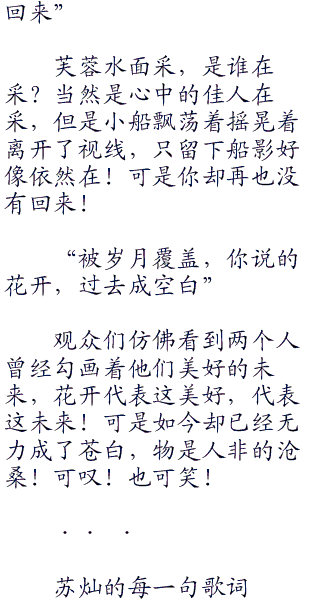 回来”
芙蓉水面采，是谁在
采？当然是心中的佳人在
采，但是小船飘荡着摇晃着
离开了视线，只留下船影好
像依然在！可是你却再也没
有回来！
“被岁月覆盖，你说的
花开，过去成空白”
观众们仿佛看到两个人
曾经勾画着他们美好的未
来，花开代表这美好，代表
这未来！可是如今却已经无
力成了苍白，物是人非的沧
桑！可叹！也可笑！
．．　．
苏灿的每一句歌词